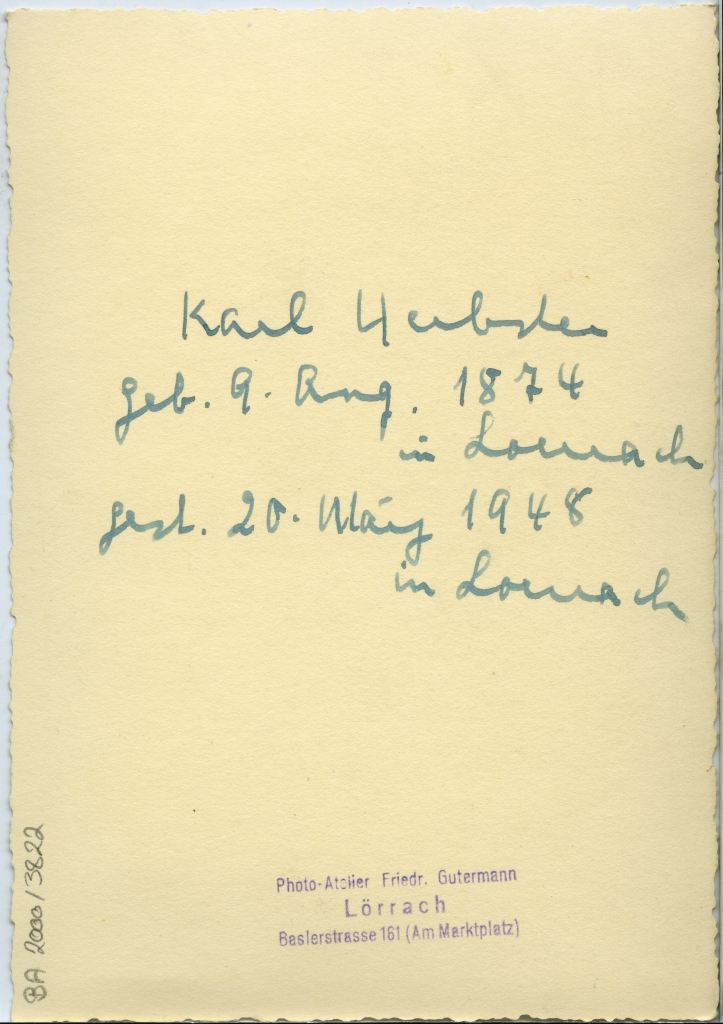 Karl Herbster
geb. 9. Aug. 1874
in Lörrach
gest. 20. März 1948
in Lörrach
Photo-Atelier Friedr. Gutermann
Lörrach
Baslerstrasse 161 (Am Marktplatz)
BA 2000/3822